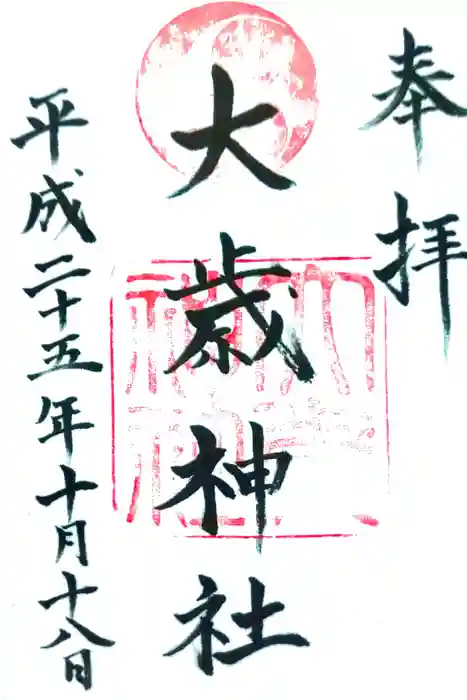 奉拝
大歳神社
平成二十五年十月十八日